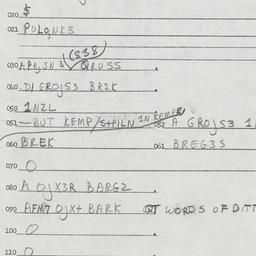 020 $
021 POLQNK3
(838)
030 APAJSN 3 QRUSS
040 DJ GROJS3 BR1K
050 1NZL
051 — BUT KEMP/S+PILN 1N KEMPE 052 A GROJS3 1
060 BREK 061 BREG3S
070 O
080 A OJX3R BARG2
090 AFM7 OJX+ BARK QT WORDS OF DITT
100 O
110 O